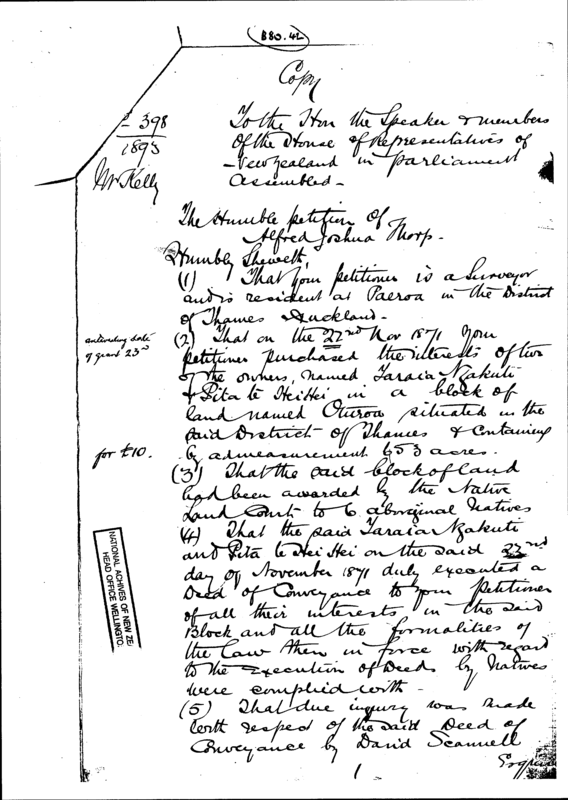 B80.42
Copy
398
1893
Mr Kelly
To the Hon the Speaker & members
Of the House of Representatives of
New Zealand in Parliament
Assembled -
The Humble petition of
Alfred Joshua Thorp -
Humbly Sheweth,
(1) That your petitioner is a Surveyor
and is resident at Paeroa in the District
of Thames Auckland -
antevesting date
of grant 23rd
(2) That on the 22nd Nov 1871 your
petitioner purchased the interests of two
of the owners, named Taraia Ngakuti
& Pita te Hei Hei in a block of
land named Oturoa situated in the
said District of Thames & Containing
by admeasurement 653 acres.
for £10.
(3) That the said block of land
had been awarded by the Native
Land Court to 6 aboriginal Natives
(4) That the said Taraia Ngakuti
and Pita te Hei Hei on the said 22nd
day of November 1871 duly executed a
Deed of Conveyance to your Petitioner
of all their interests in the said
Block and all the formalities of
the Law then in force with regard
to the execution of Deeds by Natives
were complied with -
(5) That due inquiry was made
with respect of the said Deed of
Conveyance by David Scannell
Esquire
1
NATIONAL ACHIVES OF NEW ZE
HEAD OFFICE WELLINGTO